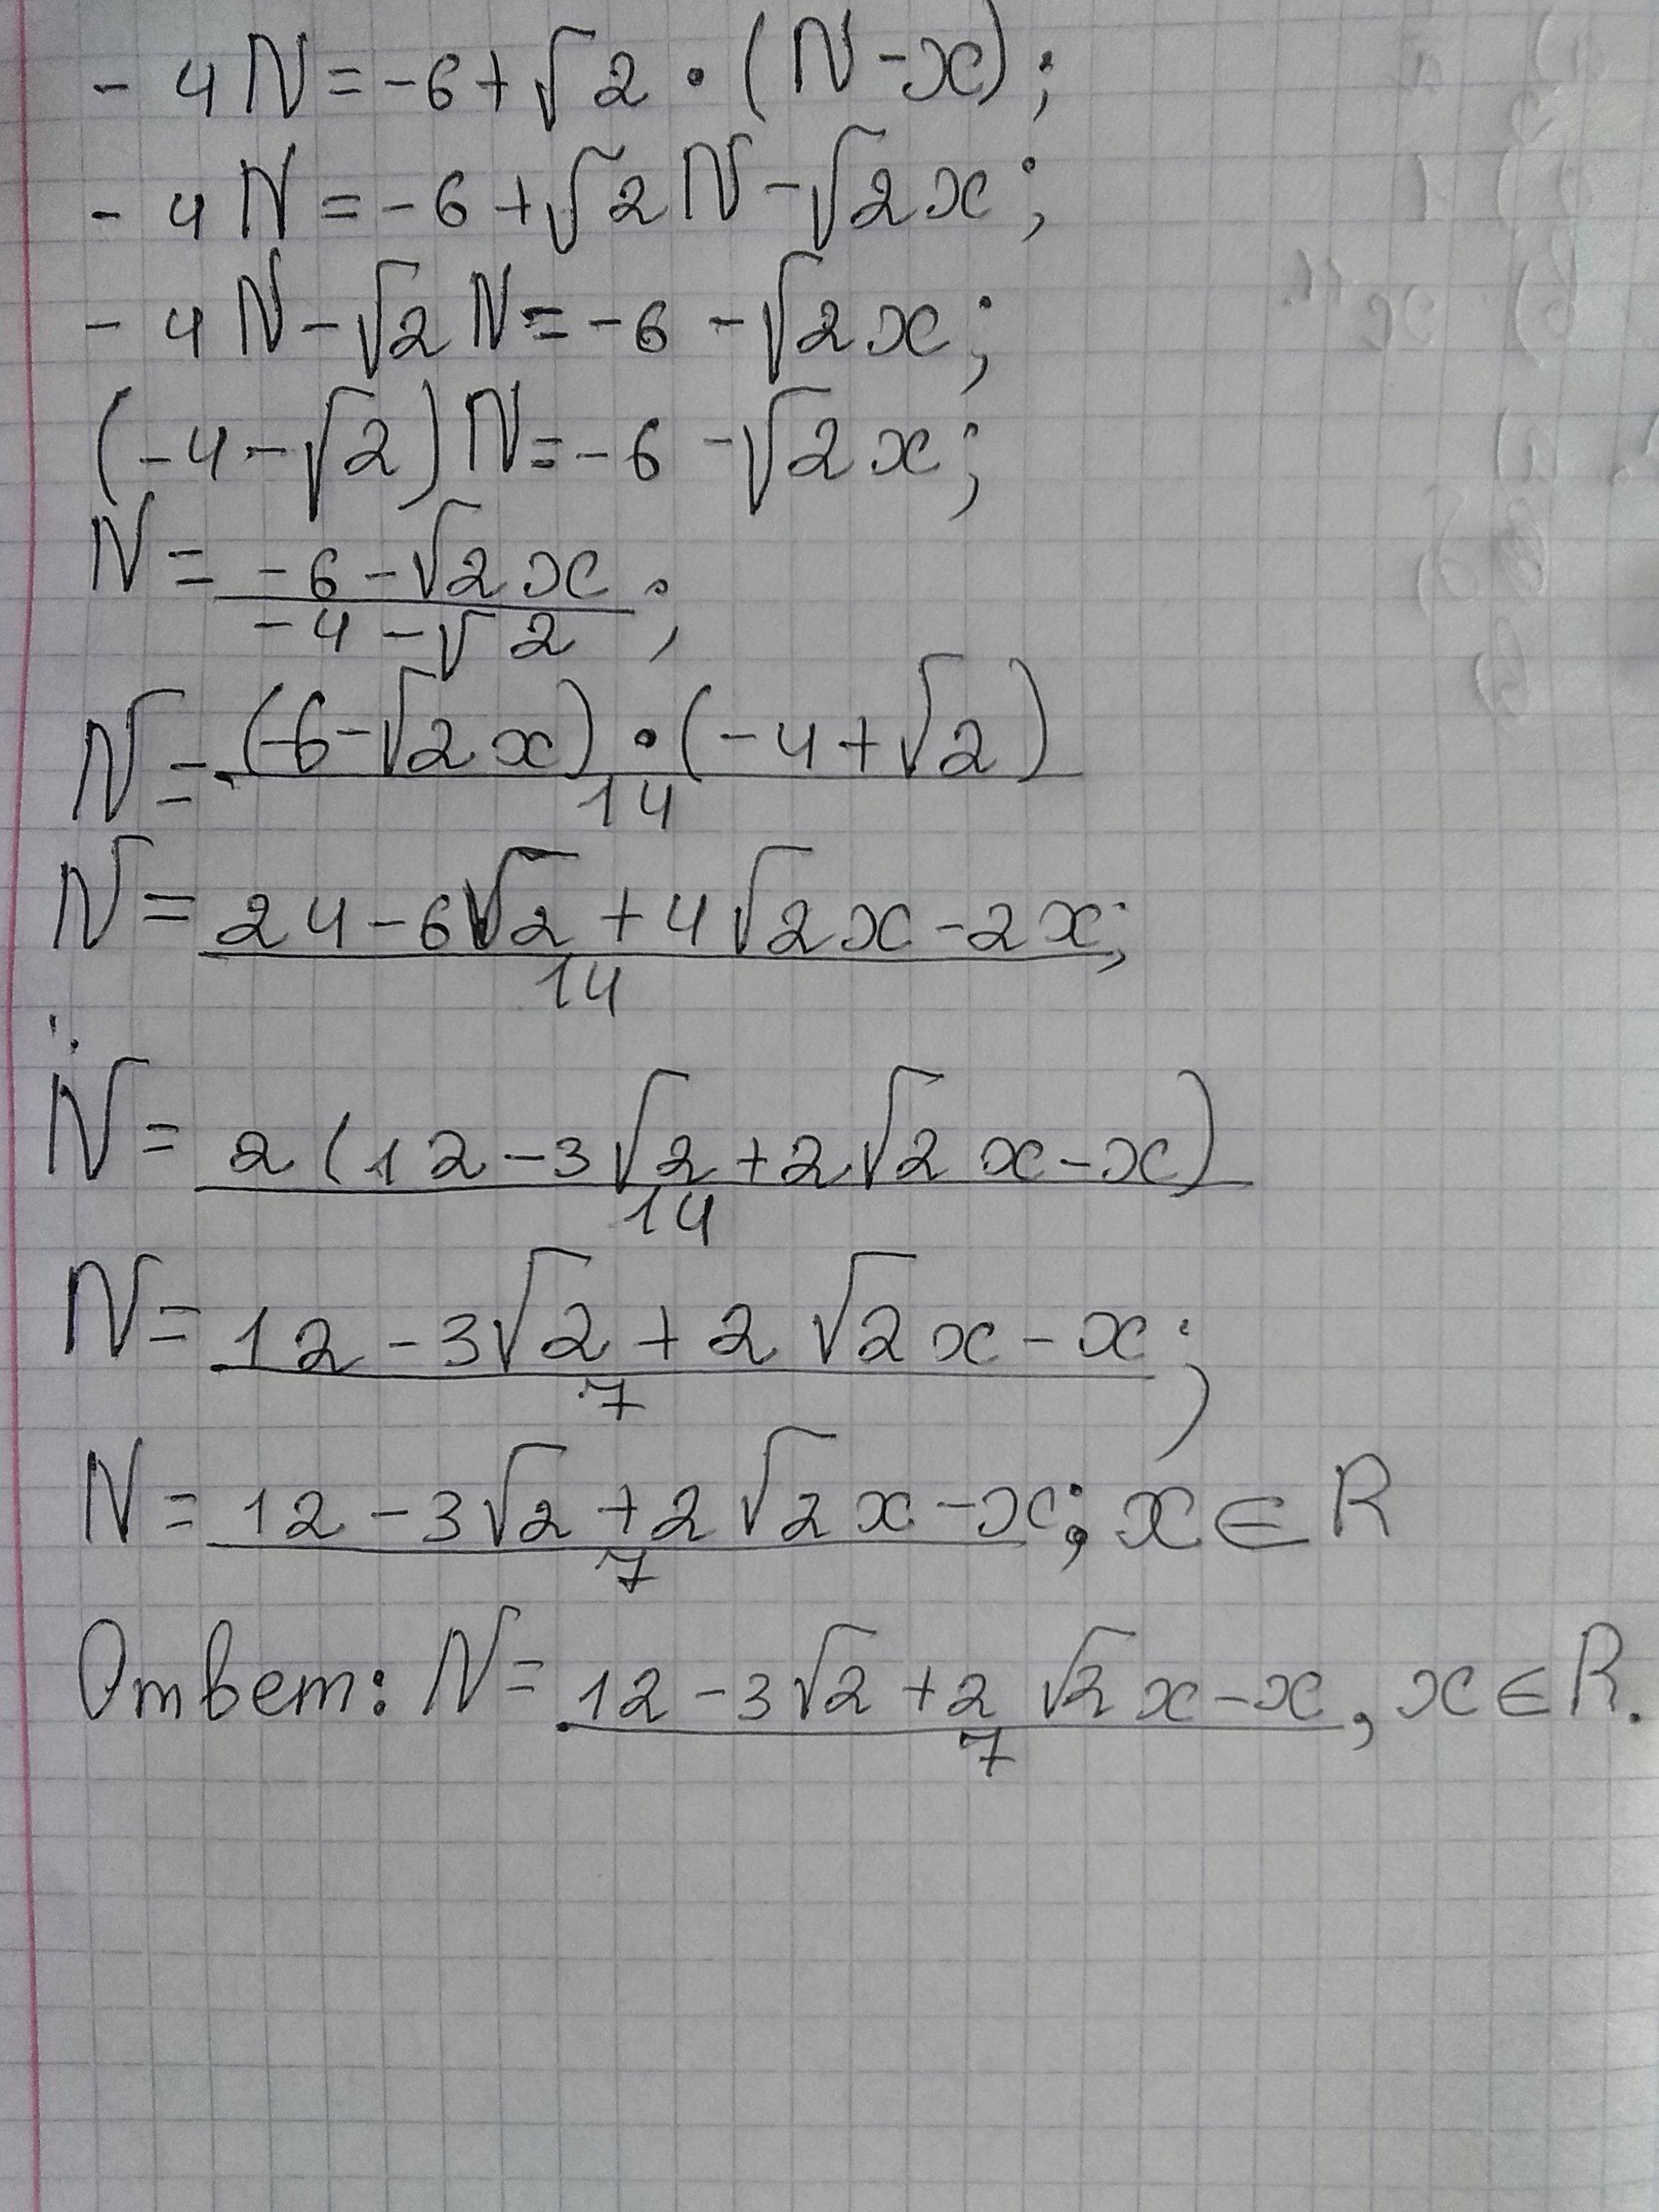 - 4N=-6+√2·(N-x);
- 4N=-6+√2N-√2x;
- 4N-√2N=-6-√2x;
(-4-√2)N=-6-√2x;
N=
-6-√2x
-4-√2
;
N=
(-6-√2x)·(-4+√2)
14
N=
24-6√2+4√2x-2x
14
;
N=
2(12-3√2+2√2x-x)
14
N=
12-3√2+2√2x-x
7
;
N=
12-3√2+2√2x-x
7
; x∈R
Ответ: N=
12-3√2+2√2x-x
7
, x∈R.